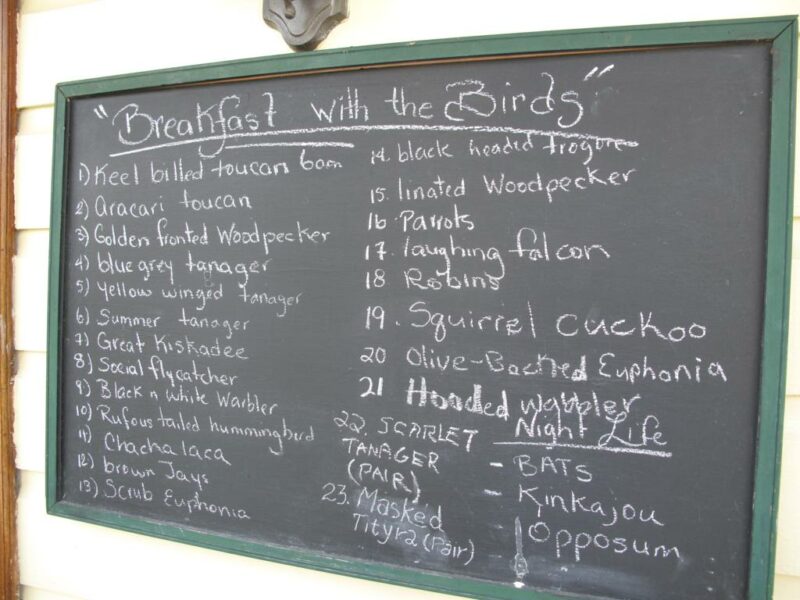 "Breakfast with the Birds"
1) Keel billed toucan 6am
2) aracari toucan
3) Golden fronted Woodpecker
4) blue grey tanager
5) Yellow winged tanager
6) Summer tanager
7) Great Kiskadee
8) Social flycatcher
9) Black n white Warbler
10) Rufous tailed hummingbird
11) Chachalaca
12) brown Jays
13) Scrub Euphonia
14. black headed trogon
15. linated Woodpecker
16 Parrots
17. laughing falcon
18 Robins
19. Squirrel cuckoo
20 Olive-Backed Euphonia
21 Hooded warbler
22. SCARLET
TANAGER
(PAIR)
23. Masked
Tityra (Pair)
Night Life
- BATS
- Kinkajou
Opposum